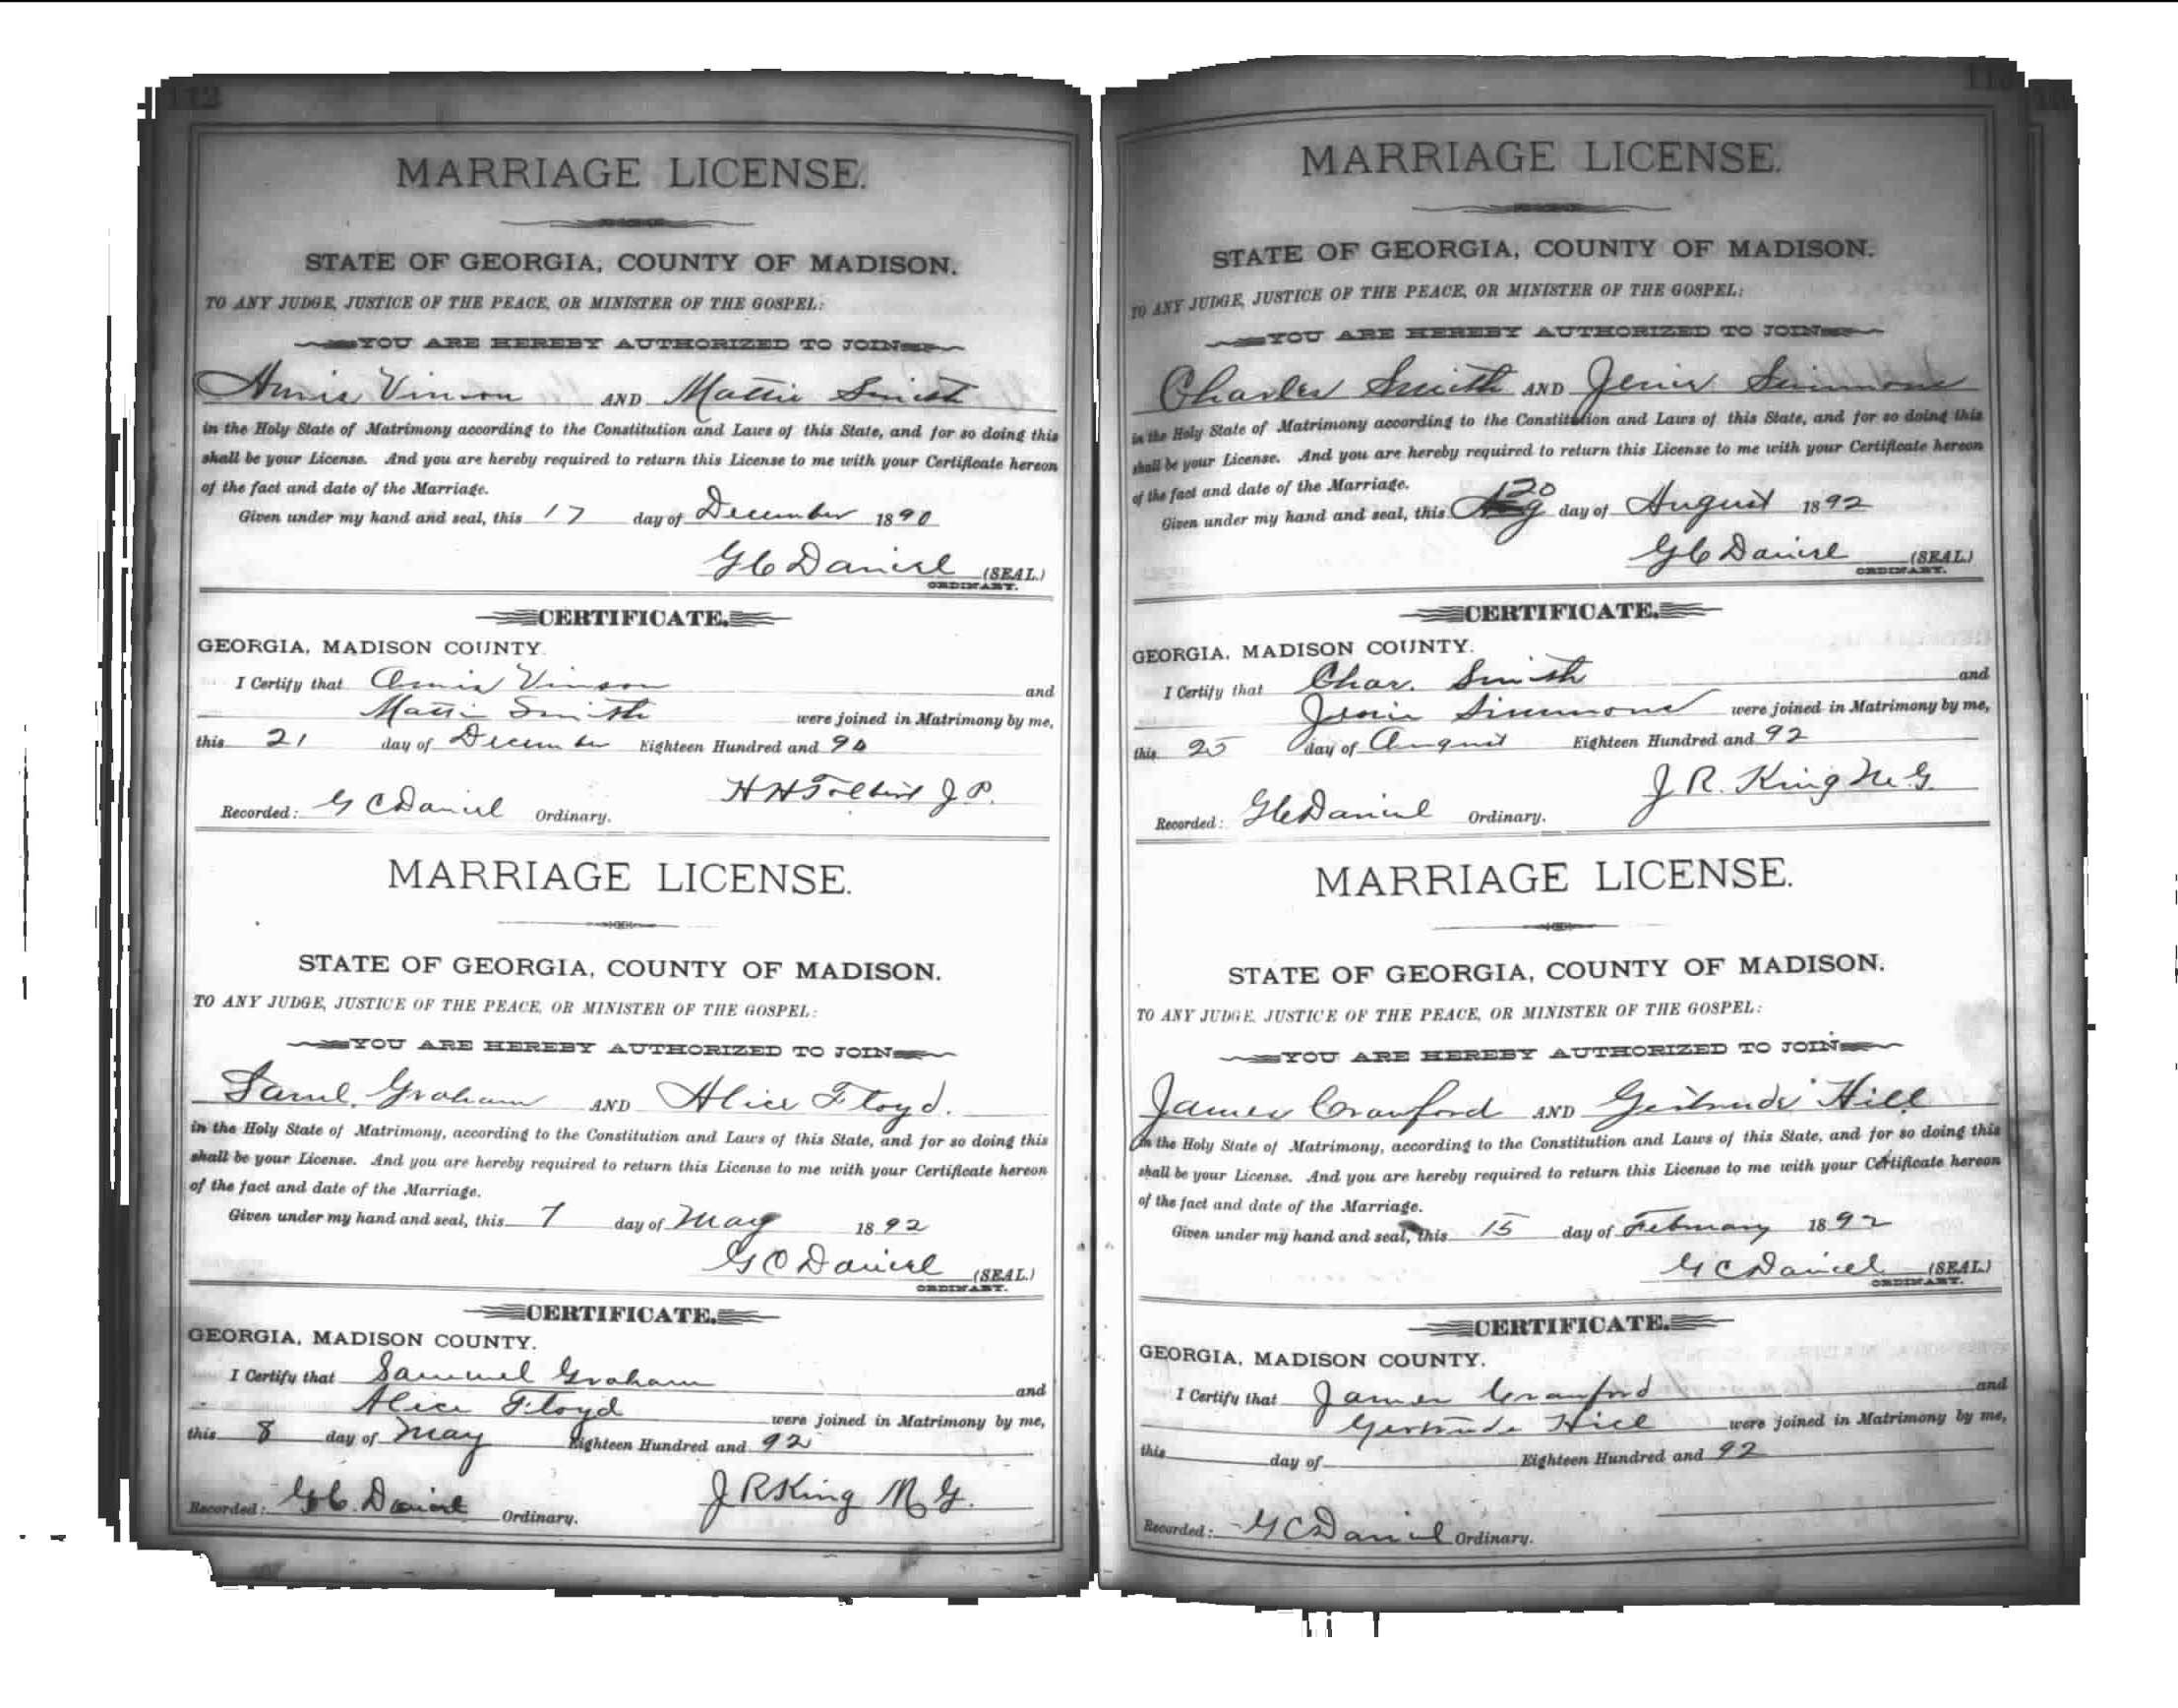 112
MARRIAGE LICENSE.
STATE OF GEORGIA, COUNTY OF MADISON.
TO ANY JUDGE, JUSTICE OF THE PEACE, OR MINISTER OF THE GOSPEL:
YOU ARE HEREBY AUTHORIZED TO JOIN
Vinson AND Mattie Smith
in the Holy State of Matrimony according to the Constitution and Laws of this State, and for so doing this
shall be your License. And you are hereby required to return this License to me with your Certificate hereon
of the fact and date of the Marriage.
Given under my hand and seal, this 17 day of December 1890
G C Daniel (SEAL.)
ORDINARY.
CERTIFICATE.
GEORGIA, MADISON COUNTY.
I Certify that Vinson and
Mattie Smith were joined in Matrimony by me,
this 21 day of December Eighteen Hundred and 90
H H Tolbert J P.
Recorded: G C Daniel Ordinary.
MARRIAGE LICENSE.
STATE OF GEORGIA, COUNTY OF MADISON.
TO ANY JUDGE, JUSTICE OF THE PEACE, OR MINISTER OF THE GOSPEL:
YOU ARE HEREBY AUTHORIZED TO JOIN
Saml. Graham AND Alice Floyd.
in the Holy State of Matrimony, according to the Constitution and Laws of this State, and for so doing this
shall be your License. And you are hereby required to return this License to me with your Certificate hereon
of the fact and date of the Marriage.
Given under my hand and seal, this 7 day of May 1892
G C Daniel (SEAL.)
ORDINARY.
CERTIFICATE.
GEORGIA, MADISON COUNTY.
I Certify that Samuel Graham and
Alice Floyd were joined in Matrimony by me,
this 8 day of May Eighteen Hundred and 92
J R King M G.
Recorded: G C. Daniel Ordinary.
MARRIAGE LICENSE.
STATE OF GEORGIA, COUNTY OF MADISON.
TO ANY JUDGE, JUSTICE OF THE PEACE, OR MINISTER OF THE GOSPEL:
YOU ARE HEREBY AUTHORIZED TO JOIN
Charles Smith AND Simmons
in the Holy State of Matrimony according to the Constitution and Laws of this State, and for so doing this
shall be your License. And you are hereby required to return this License to me with your Certificate hereon
of the fact and date of the Marriage.
Given under my hand and seal, this 20 day of August 1892
G C Daniel (SEAL.)
ORDINARY.
CERTIFICATE.
GEORGIA, MADISON COUNTY.
I Certify that Chas. Smith and
Simmons were joined in Matrimony by me,
this 25 day of August Eighteen Hundred and 92
J R. King M. G.
Recorded: G C Daniel Ordinary.
MARRIAGE LICENSE.
STATE OF GEORGIA, COUNTY OF MADISON.
TO ANY JUDGE, JUSTICE OF THE PEACE, OR MINISTER OF THE GOSPEL:
YOU ARE HEREBY AUTHORIZED TO JOIN
James Crawford AND Gertrude Hill
in the Holy State of Matrimony, according to the Constitution and Laws of this State, and for so doing this
shall be your License. And you are hereby required to return this License to me with your Certificate hereon
of the fact and date of the Marriage.
Given under my hand and seal, this 15 day of February 1892
G C Daniel (SEAL.)
ORDINARY.
CERTIFICATE.
GEORGIA, MADISON COUNTY.
I Certify that James Crawford and
Gertrude Hill were joined in Matrimony by me,
this day of Eighteen Hundred and 92
Recorded: G C Daniel Ordinary.